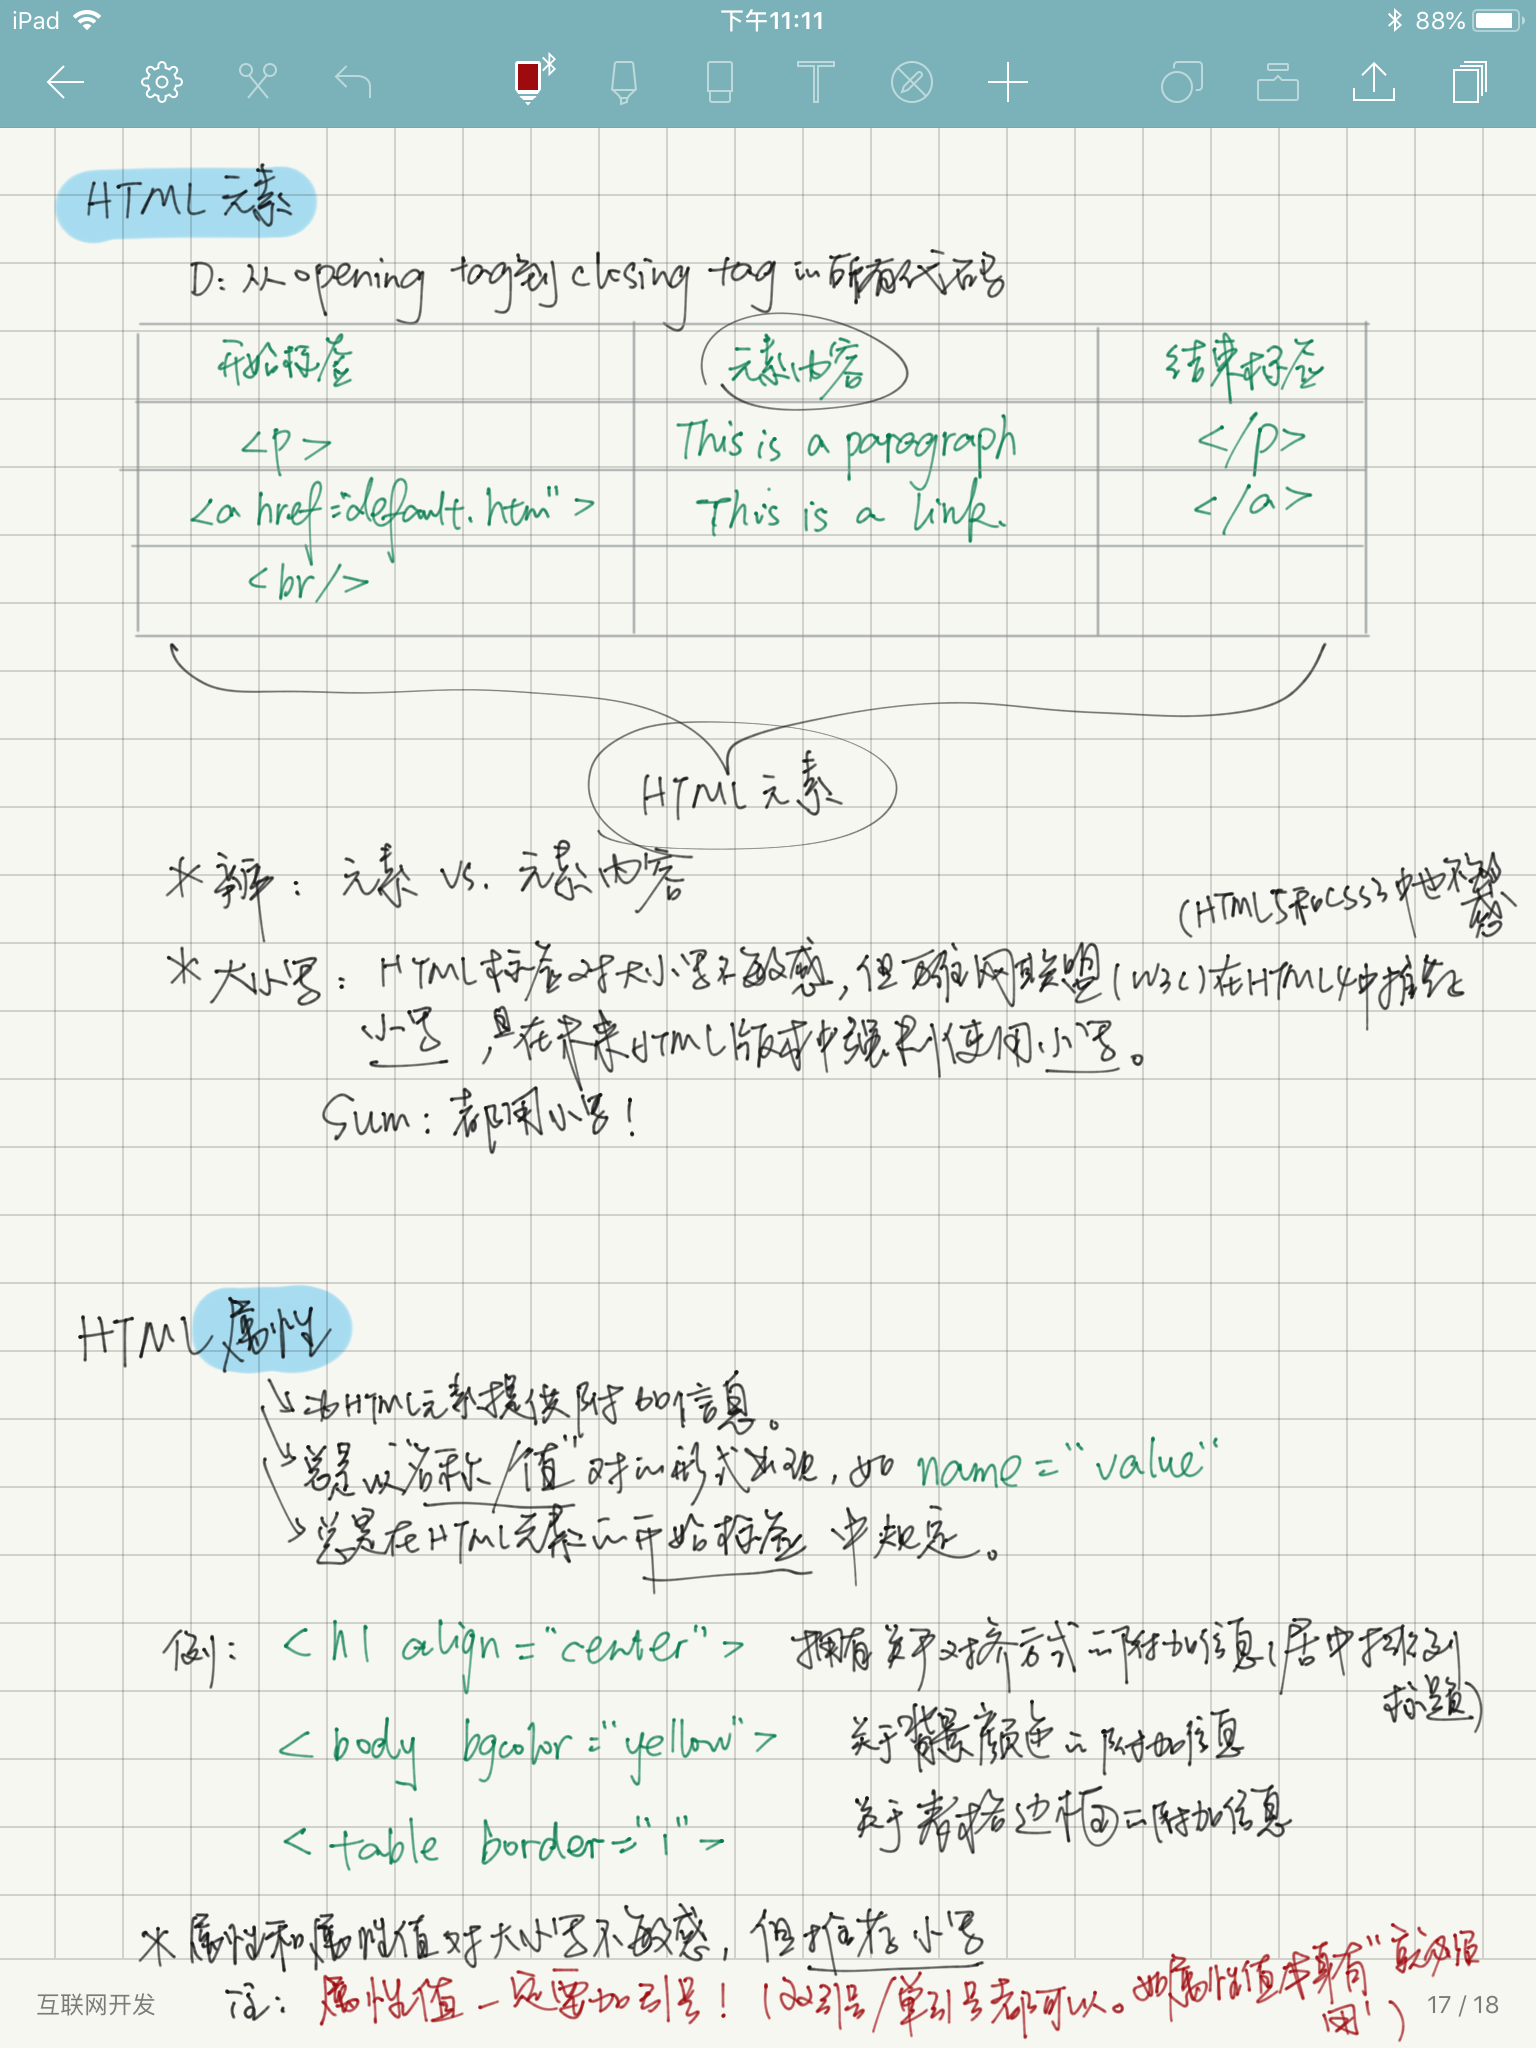 iPad 下午11:11 88%
HTML 元素
D: 从 opening tag到 closing tag 的所有代码
开始标签 元素内容 结束标签
<p> This is a paragraph </p>
<a href="default.htm"> This is a link. </a>
<br/>
HTML 元素
* 辨: 元素 vs. 元素内容
(HTML5和CSS3中也不敏感
* 大小写: HTML标签对大小写不敏感, 但万维网联盟(W3C)在HTML4中推荐
小写, 且在未来HTML版本中强制使用小写。
Sum: 都用小写!
HTML属性
为HTML元素提供附加信息。
总是以"名称/值"对的形式出现, 如 name="value"
总是在HTML元素的开始标签中规定。
例: <h1 align="center"> 拥有关于对齐方式的附加信息(居中排列
标题)
<body bgcolor="yellow"> 关于背景颜色的附加信息
<table border="1"> 关于表格边框的附加信息
* 属性和属性值对大小写不敏感, 但推荐小写
注: 属性值一定要加引号! (双引号/单引号都可以。如属性值本身有"就必须
用')
互联网开发 17 / 18